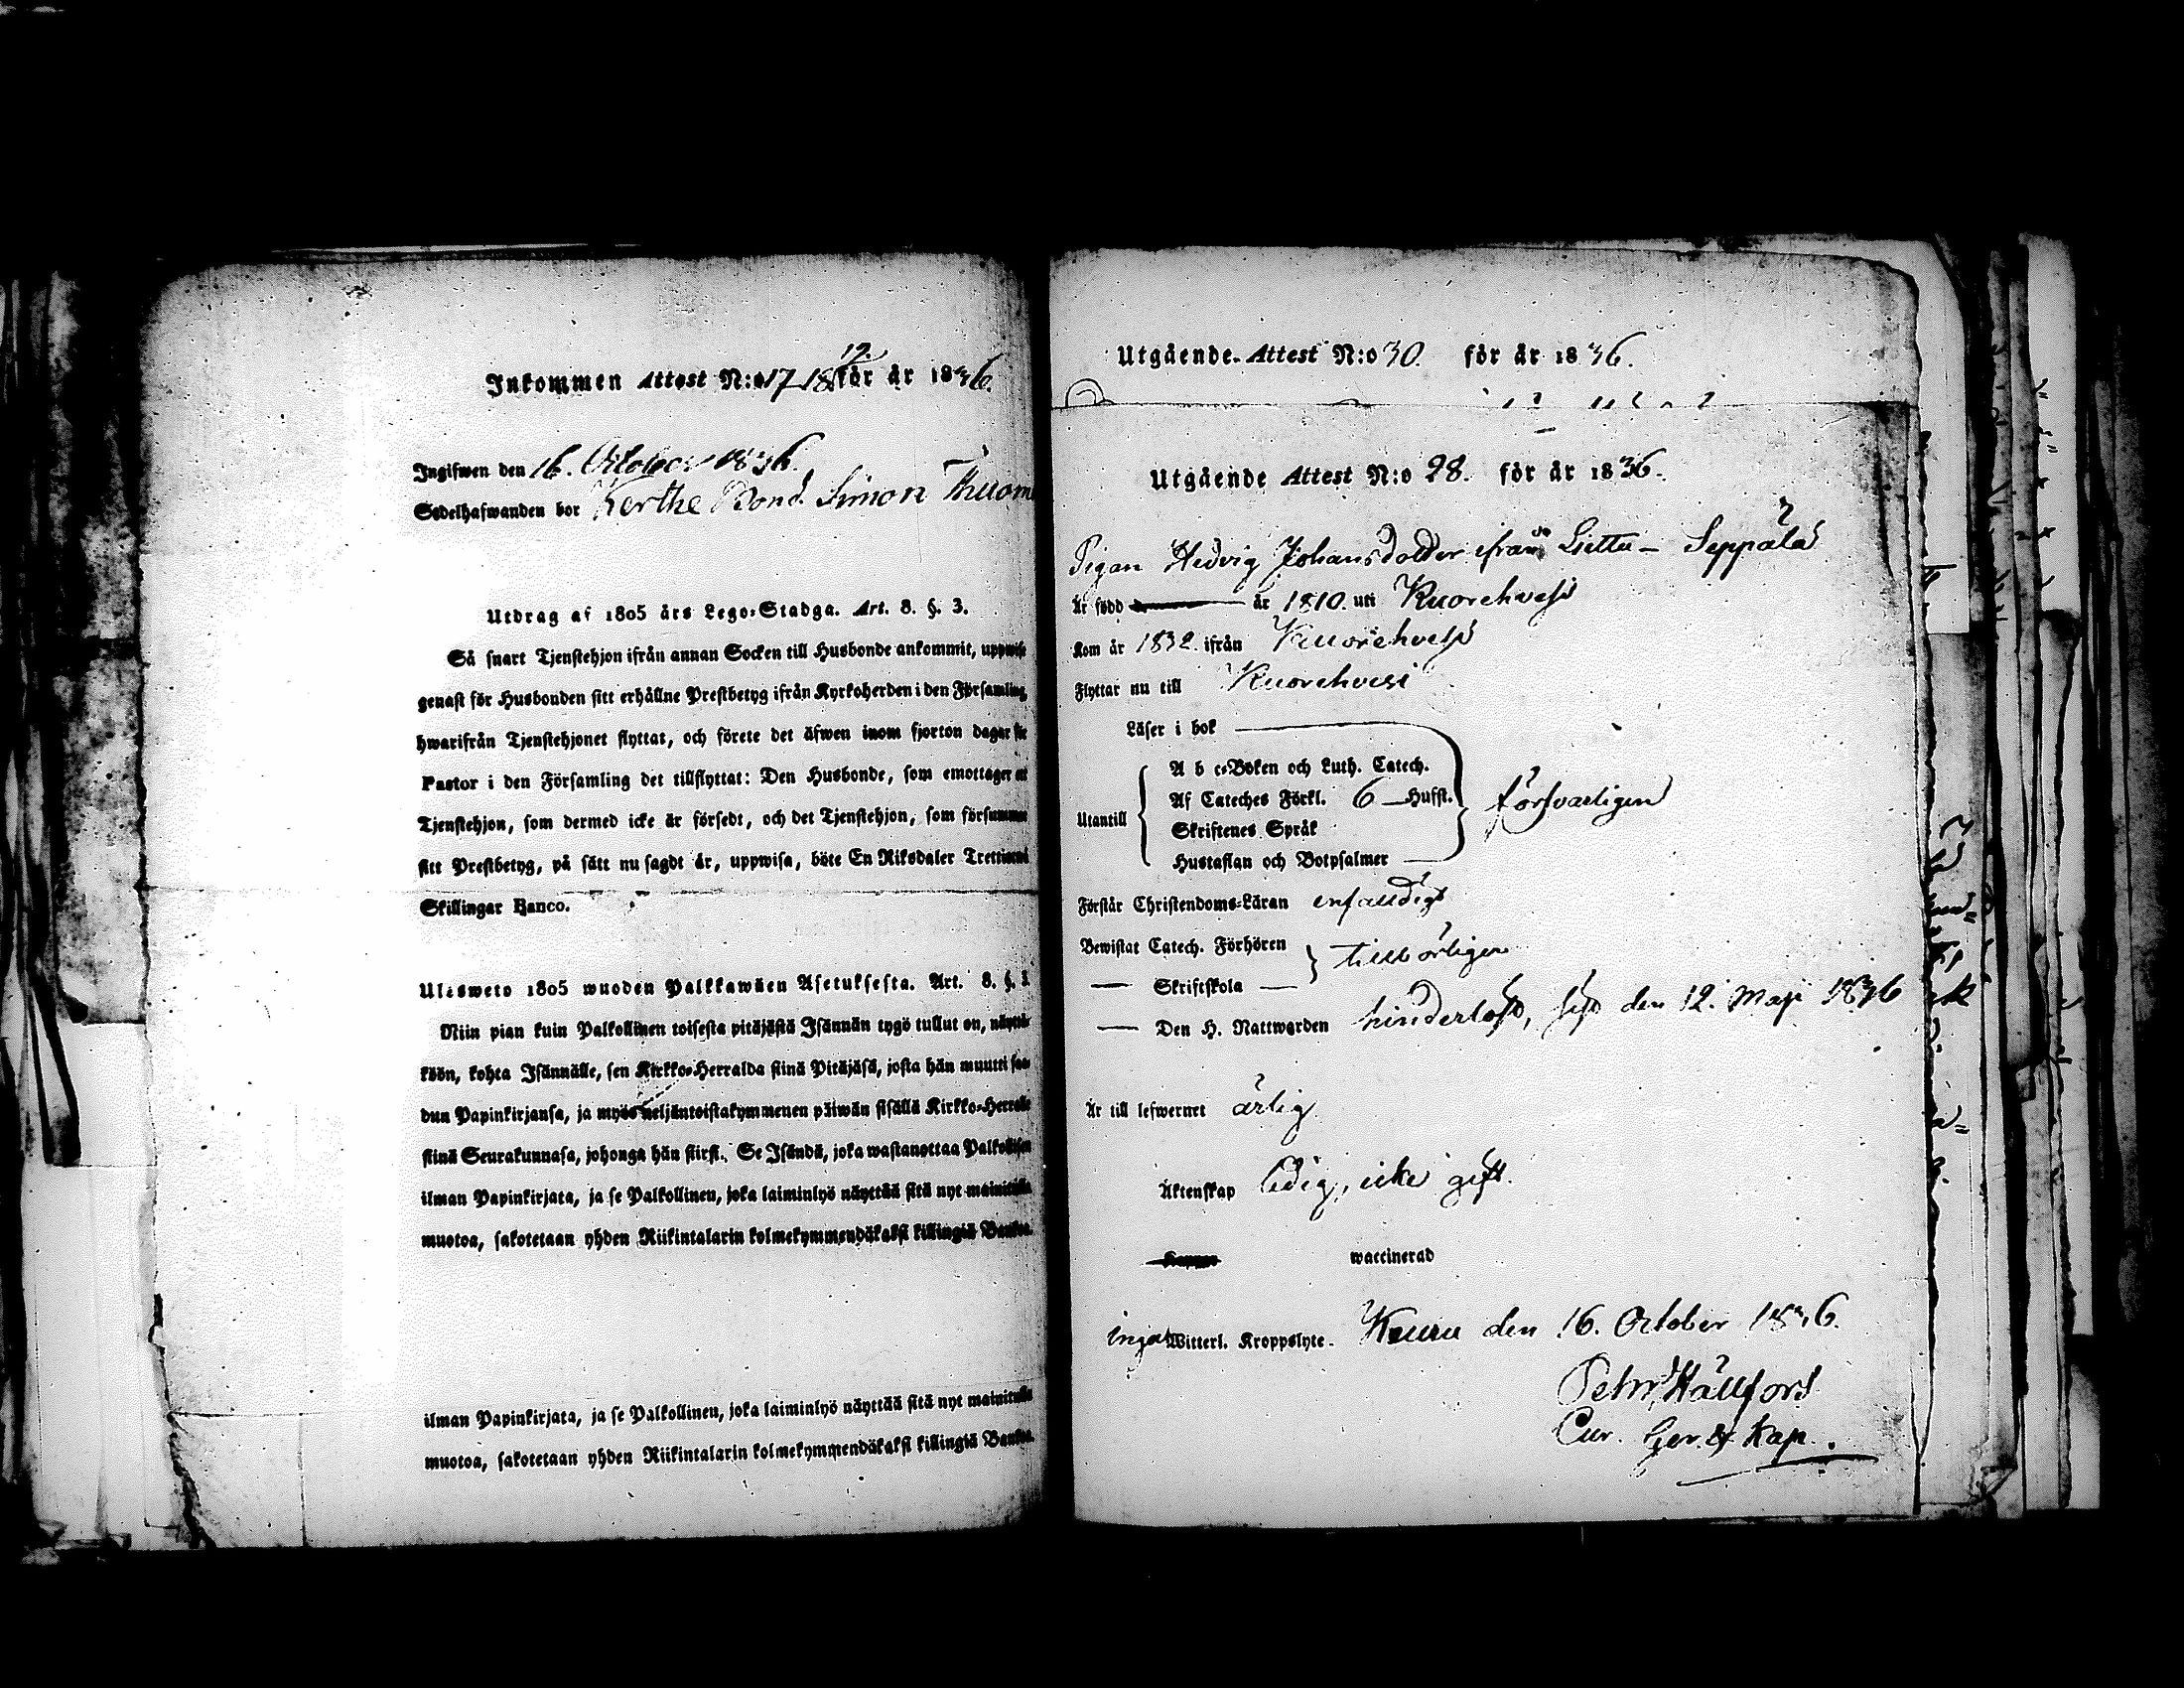 Inkommen Attest N:o 17-18 19. för år 1836.
Ingifwen den 16. October 1836.
Sedelhafwanden bor Kerthe Bond. Simon Thuom
Utdrag af 1805 års Lego-Stadga. Art. 8. §. 3.
Så snart Tjenstehjon ifrån annan Socken till Husbonde ankommit, uppwise
genast för Husbonden sitt erhållne Prestbetyg ifrån Kyrkoherden i den Församling,
hwarifrån Tjenstehjonet flyttat, och förete det äfwen inom fjorton dagar för
Pastor i den Församling det tillflyttat: Den Husbonde, som emottager ett
Tjenstehjon, som dermed icke är försedt, och det Tjenstehjon, som försummar
sitt Prestbetyg, på sätt nu sagdt är, uppwisa, böte En Riksdaler Trettiotwå
Skillingar Banco.
Ulosweto 1805 wuoden Palkkawäen Asetuksesta. Art. 8. §. 3.
Niin pian kuin Palkollinen toisesta pitäjästä Isännän tygö tullut on, näyttä-
köön, kohta Isännälle, sen Kirkko-Herralda siinä Pitäjäsä, josta hän muutti saa-
dun Papinkirjansa, ja myös neljäntoistakymmenen päiwän sisällä Kirkko-Herralle
siinä Seurakunnasa, johonga hän siirsi. Se Isändä, joka wastanottaa Palkollisen
ilman Papinkirjata, ja se Palkollinen, joka laiminlyö näyttää sitä nyt mainitulla
muotoa, sakotetaan yhden Riikintalarin kolmekymmendäkaksi killingiä Bankoa.
ilman Papinkirjata, ja se Palkollinen, joka laiminlyö näyttää sitä nyt mainitulla
muotoa, sakotetaan yhden Riikintalarin kolmekymmendäkaksi killingiä Bankoa.
Utgående Attest N:o 30. för år 1836.
Utgående Attest N:o 28. för år 1836.
Pigan Hedvig Johansdotter ifrån Liettu - Seppälä
Är född år 1810. uti Kuorehvesi
Kom år 1832. ifrån Kuorehvesi
Flyttar nu till Kuorehvesi
Läser i bok
A b c-Boken och Luth. Catech.
Af Cateches Förkl. 6 Hufst.
Utantill
Skriftenes Språk
försvarligen
Hustaflan och Botpsalmer
Förstår Christendoms-Läran enfaldigt
Bewistat Catech. Förhören
tillbörligen
Skriftskola
Den H. Nattwarden hinderlöst, sist den 12. Maji 1836
Är till lefwernet ärlig
Äktenskap ledig, icke gift.
waccinerad
inga Witterl. Kroppslyte. Keuru den 16. October 1836.
Petr. Hällfors
Cur. Ger. & Kap.